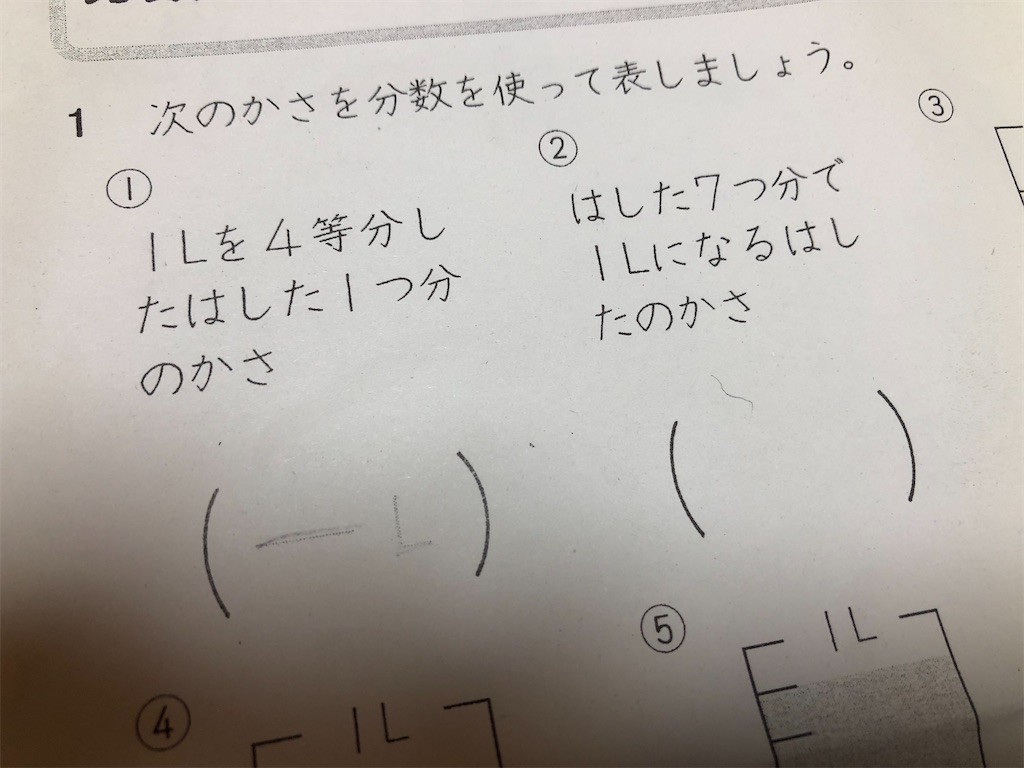 1 次のかさを分数を使って表しましょう。
①
1Lを4等分し
たはした1つ分
のかさ
( ― L )
②
はした7つ分で
1Lになるはし
たのかさ
( )
③
④
1L
⑤
1L